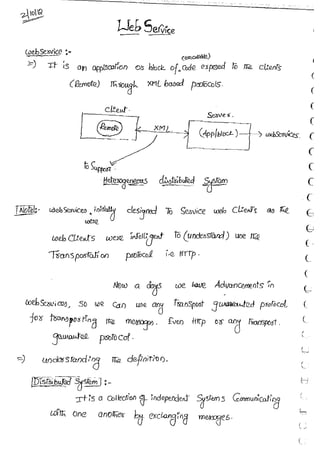 2/10/12
Web Service
Web Service :-
(consumable)
=) It is an application or block of code exposed to the clients
(Remote) Through XML based protocols.
Client
Server
Remote
XML
(App/block)
webservices
to Support
Heterogeneous distributed System
Note:- WebServices initially designed to Service web clients as the
were
web clients were intelligent to (understand) use the
Transportation protocol i.e HTTP.
Now a days we have Advancements in
webservices, So we can use any Transport guaranteed protocol
for transporting the messages. Even Http or any Transport
guaranteed protocol.
=) understanding The definition.
Distributed System :-
It is a collection of independent Systems Communicating
with one another by exchanging messages.